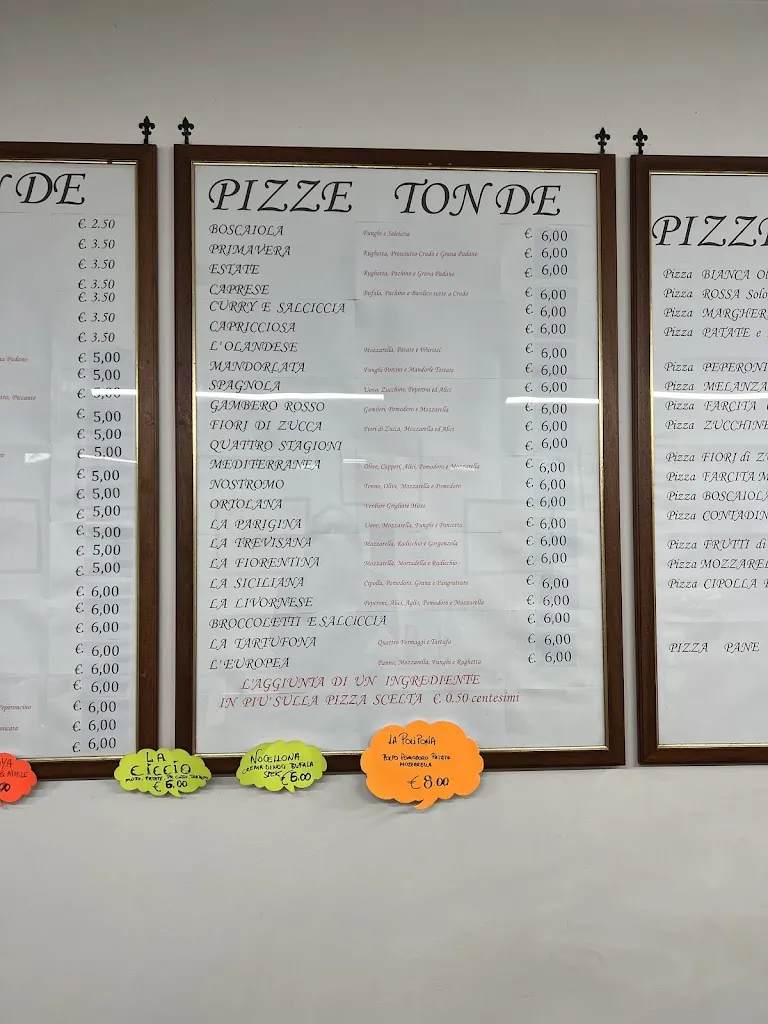 DE
€ 2.50
€ 3.50
€ 3.50
€ 3.50
€ 3.50
€ 3.50
€ 3.50
€ 5,00
€ 5,00
€ 5,00
Piccante
€ 5,00
€ 5,00
€ 5,00
€ 5,00
€ 5,00
€ 5,00
€ 5,00
€ 5,00
€ 5,00
€ 6,00
€ 6,00
€ 6,00
€ 6,00
€ 6,00
€ 6,00
Peperoncino
€ 6,00
€ 6,00
€ 6,00
PIZZE TONDE
BOSCAIOLA Funghi e Salciccia € 6,00
PRIMAVERA Rughetta, Prosciutto Crudo e Grana Padano € 6,00
ESTATE Rughetta, Pachino e Grana Padano € 6,00
CAPRESE Bufala, Pachino e Basilico tutto a Crudo € 6,00
CURRY E SALCICCIA € 6,00
CAPRICCIOSA
L'OLANDESE Mozzarella, Patate e Wurstel € 6,00
MANDORLATA Funghi Porcini e Mandorle Tostate € 6,00
SPAGNOLA Uovo, Zucchine, Peperoni ed Alici € 6,00
GAMBERO ROSSO Gamberi, Pomodoro e Mozzarella € 6,00
FIORI DI ZUCCA Fiori di Zucca, Mozzarella ed Alici € 6,00
QUATTRO STAGIONI € 6,00
MEDITERRANEA Olive, Capperi, Alici, Pomodoro e Mozzarella € 6,00
NOSTROMO Tonno, Olive, Mozzarella e Pomodoro € 6,00
ORTOLANA Verdure Grigliate Miste € 6,00
LA PARIGINA Uovo, Mozzarella, Funghi e Pancetta € 6,00
LA TREVISANA Mozzarella, Radicchio e Gorgonzola € 6,00
LA FIORENTINA Mozzarella, Mortadella e Radicchio € 6,00
LA SICILIANA Cipolla, Pomodoro, Grana e Pangrattato € 6,00
LA LIVORNESE Peperoni, Alici, Aglio, Pomodoro e Mozzarella € 6,00
BROCCOLETTI E SALCICCIA
LA TARTUFONA Quattro Formaggi e Tartufo € 6,00
L'EUROPEA Panna, Mozzarella, Funghi e Rughetta € 6,00
L'AGGIUNTA DI UN INGREDIENTE
IN PIU' SULLA PIZZA SCELTA € 0.50 centesimi
PIZZ
Pizza BIANCA
Pizza ROSSA Solo
Pizza MARGHER
Pizza PATATE e
Pizza PEPERONI
Pizza MELANZA
Pizza FARCITA
Pizza ZUCCHINE
Pizza FIORI di ZU
Pizza FARCITA M
Pizza BOSCAIOLA
Pizza CONTADIN
Pizza FRUTTI di
Pizza MOZZAREL
Pizza CIPOLLA
PIZZA PANE
& MIELE
LA
CICCIO
€ 6,00
NOCELLONA
CREMA DI NOCI BUFALA
SPEK € 6.00
LA POLIPONA
POLPO POMODORO PATATE
MOZZARELLA
€ 8.00